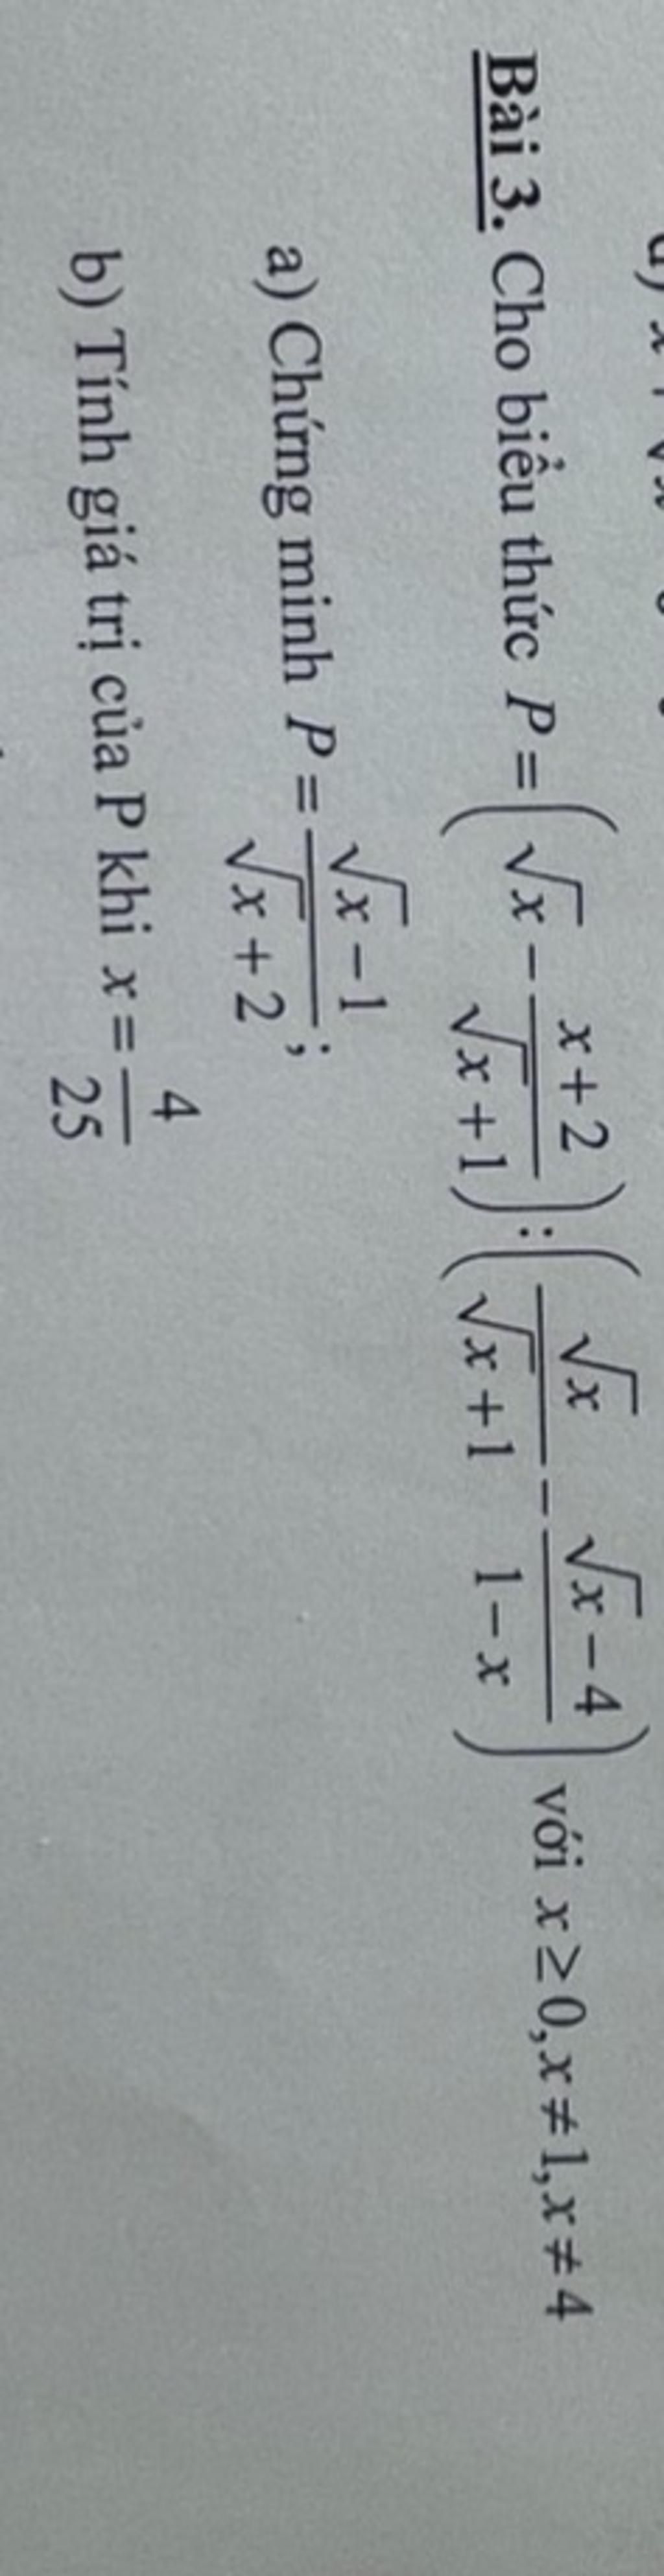 Bài 3. Cho biểu thức P = (√x − (x+2)/(√x+1)) : (√x/(√x+1) − (√x−4)/(1−x)) với x ≥ 0, x ≠ 1, x ≠ 4
a) Chứng minh P = (√x−1)/(√x+2);
b) Tính giá trị của P khi x = 4/25